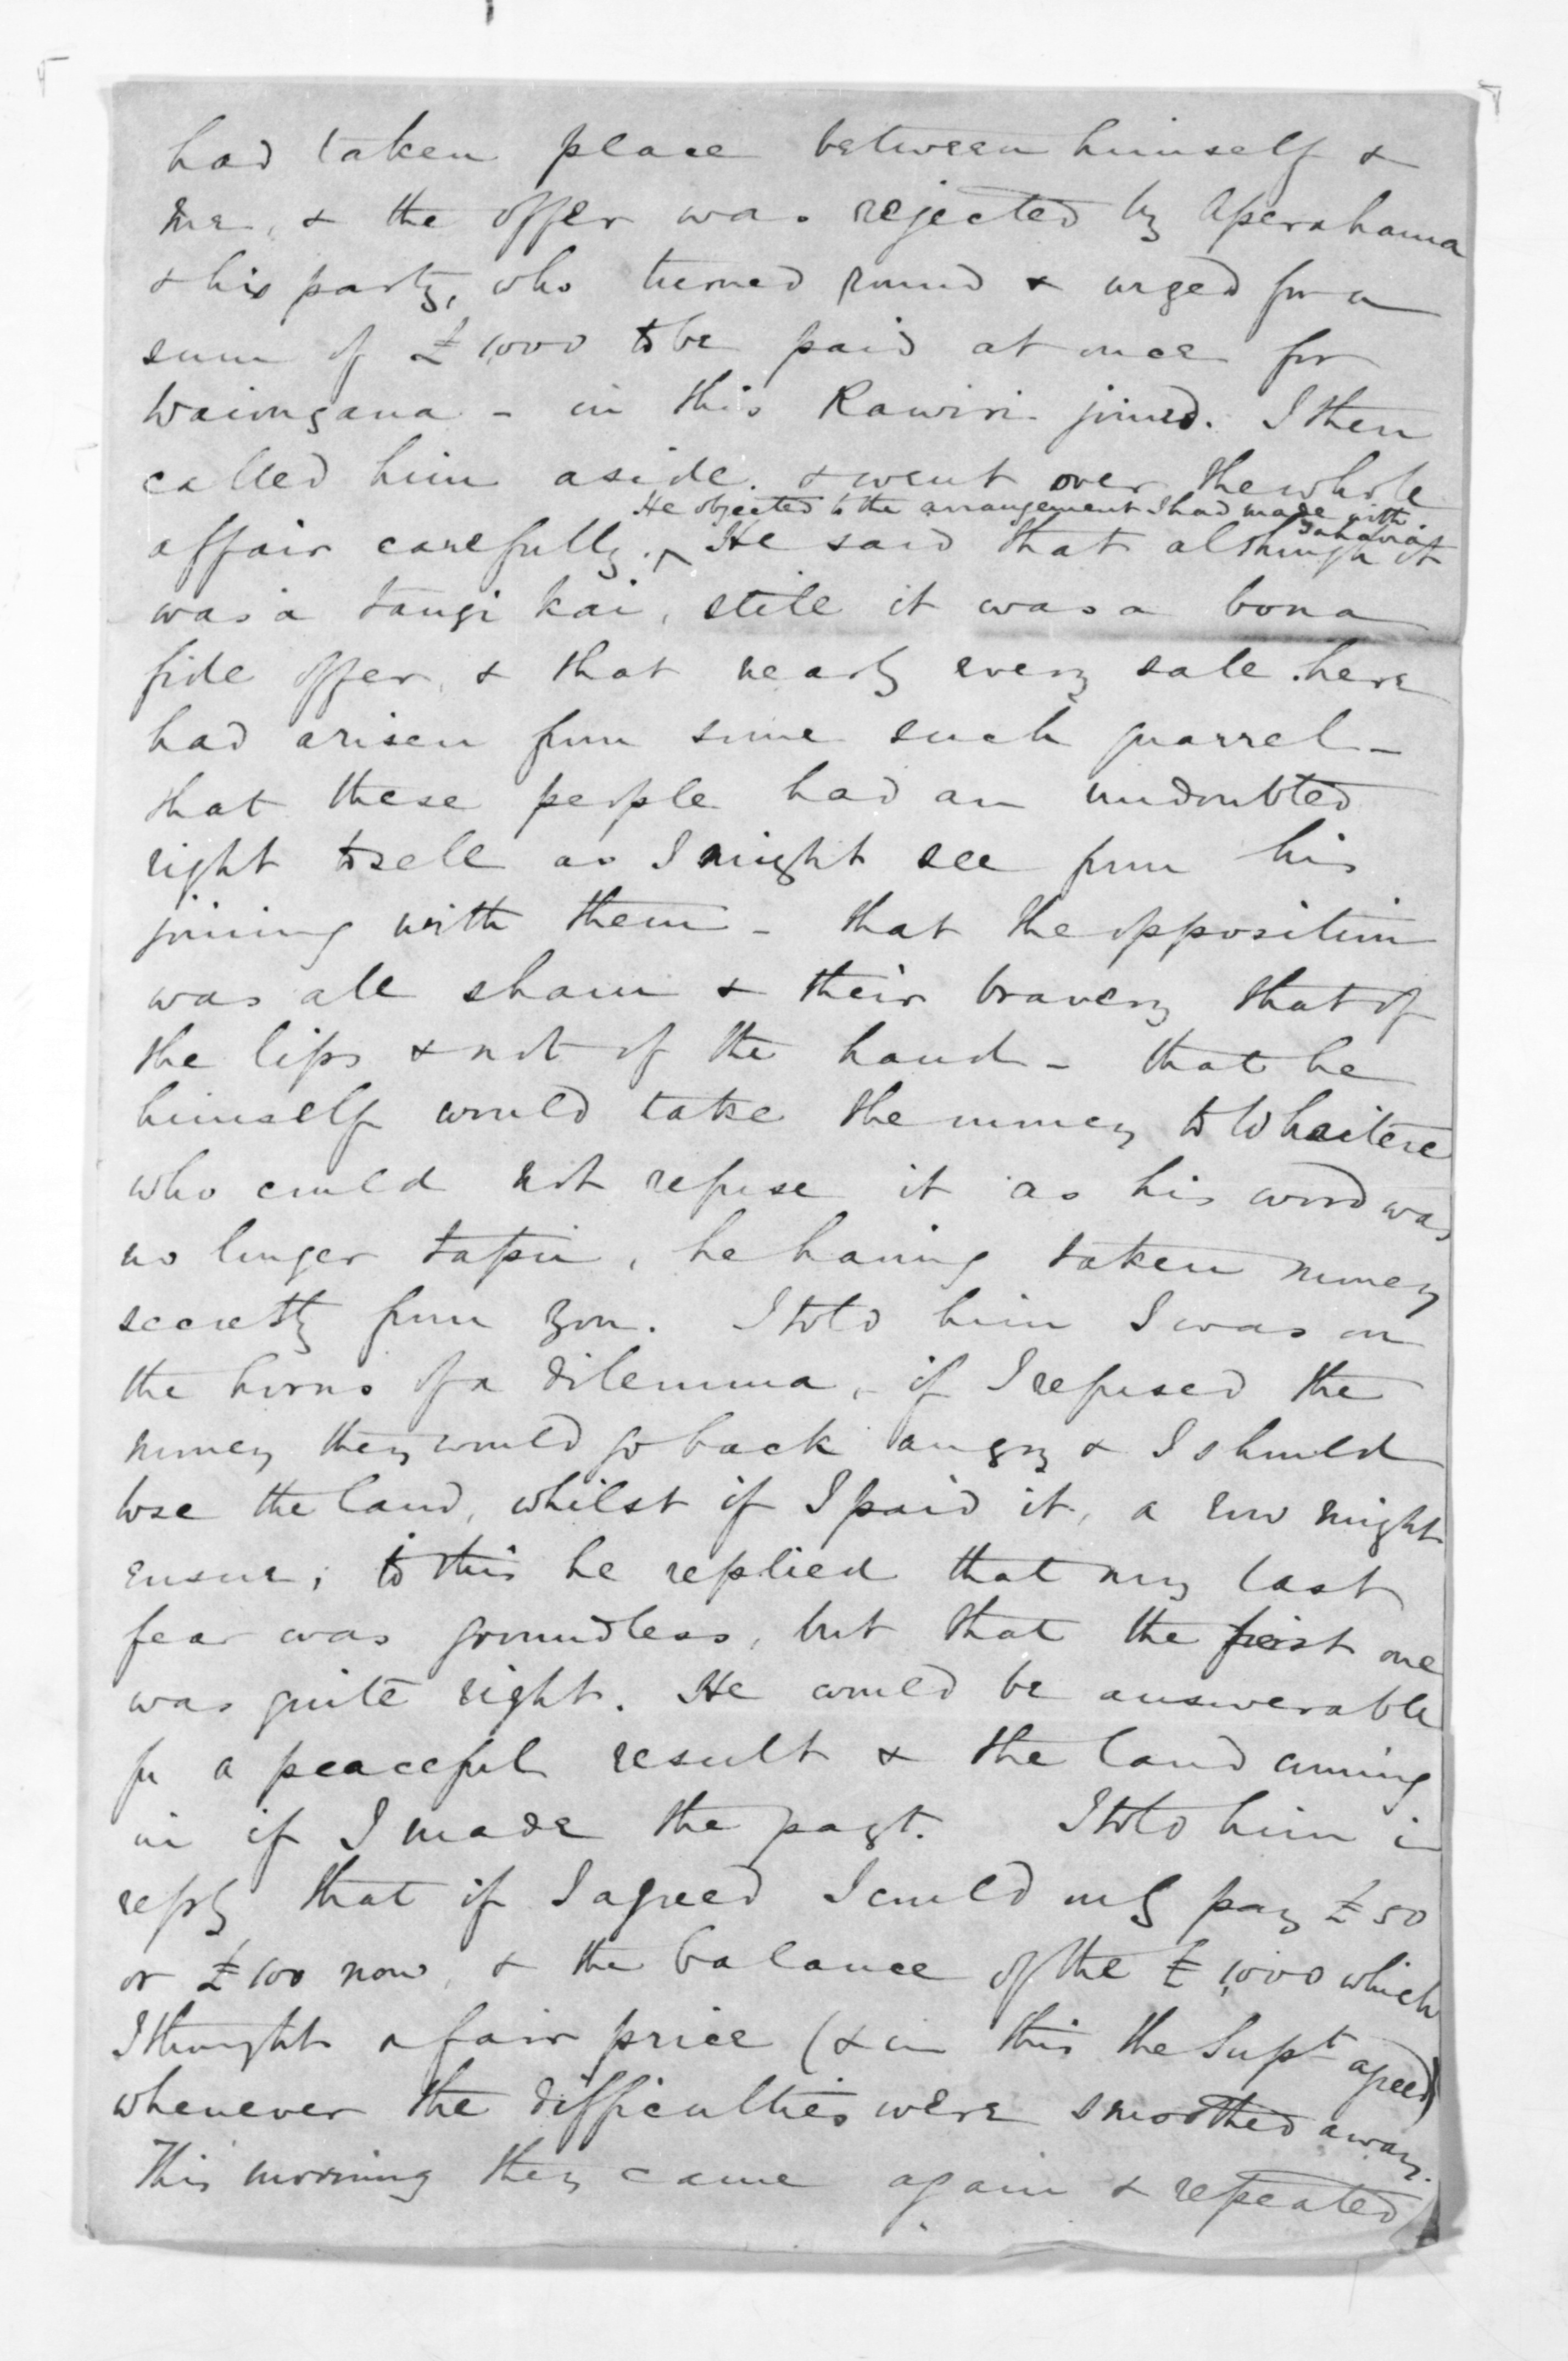 had taken place between himself &
me, & the offer was rejected by Aperahama
& his party, who turned round & urged for a
sum of £1000 to be paid at once for
Waiongana - in this Rawiri joined. I then
called him aside. & went over the whole
He objected to the arrangement I had made with
affair carefully. ^ He said that although it
was a tangi kai, still it was a bona
fide offer, & that nearly every sale here
had arisen from some such quarrel -
that these people had an undoubted
right to sell as I might see from his
joining with them - that the opposition
was all sham & their bravery that of
the lips & not of the hand - that he
himself would take the money to Whaitere
who could not refuse it as his word was
no longer tapu, he having taken money
secretly from you. I told him I was on
the horns of a dilemma, - if I refused the
money they would go back angry & I should
lose the land, whilst if I paid it, a row might
ensue; to this he replied that my last
fear was groundless, but that the first one
was quite right. He would be answerable
for a peaceful result & the land coming
in if I made the payt. I told him in
reply that if I agreed I could only pay £50
or £100 now, & the balance of the £1,000 which
I thought a fair price (& in this the Supt agreed)
whenever the difficulties were smoothed away.
This morning they came again & repeated